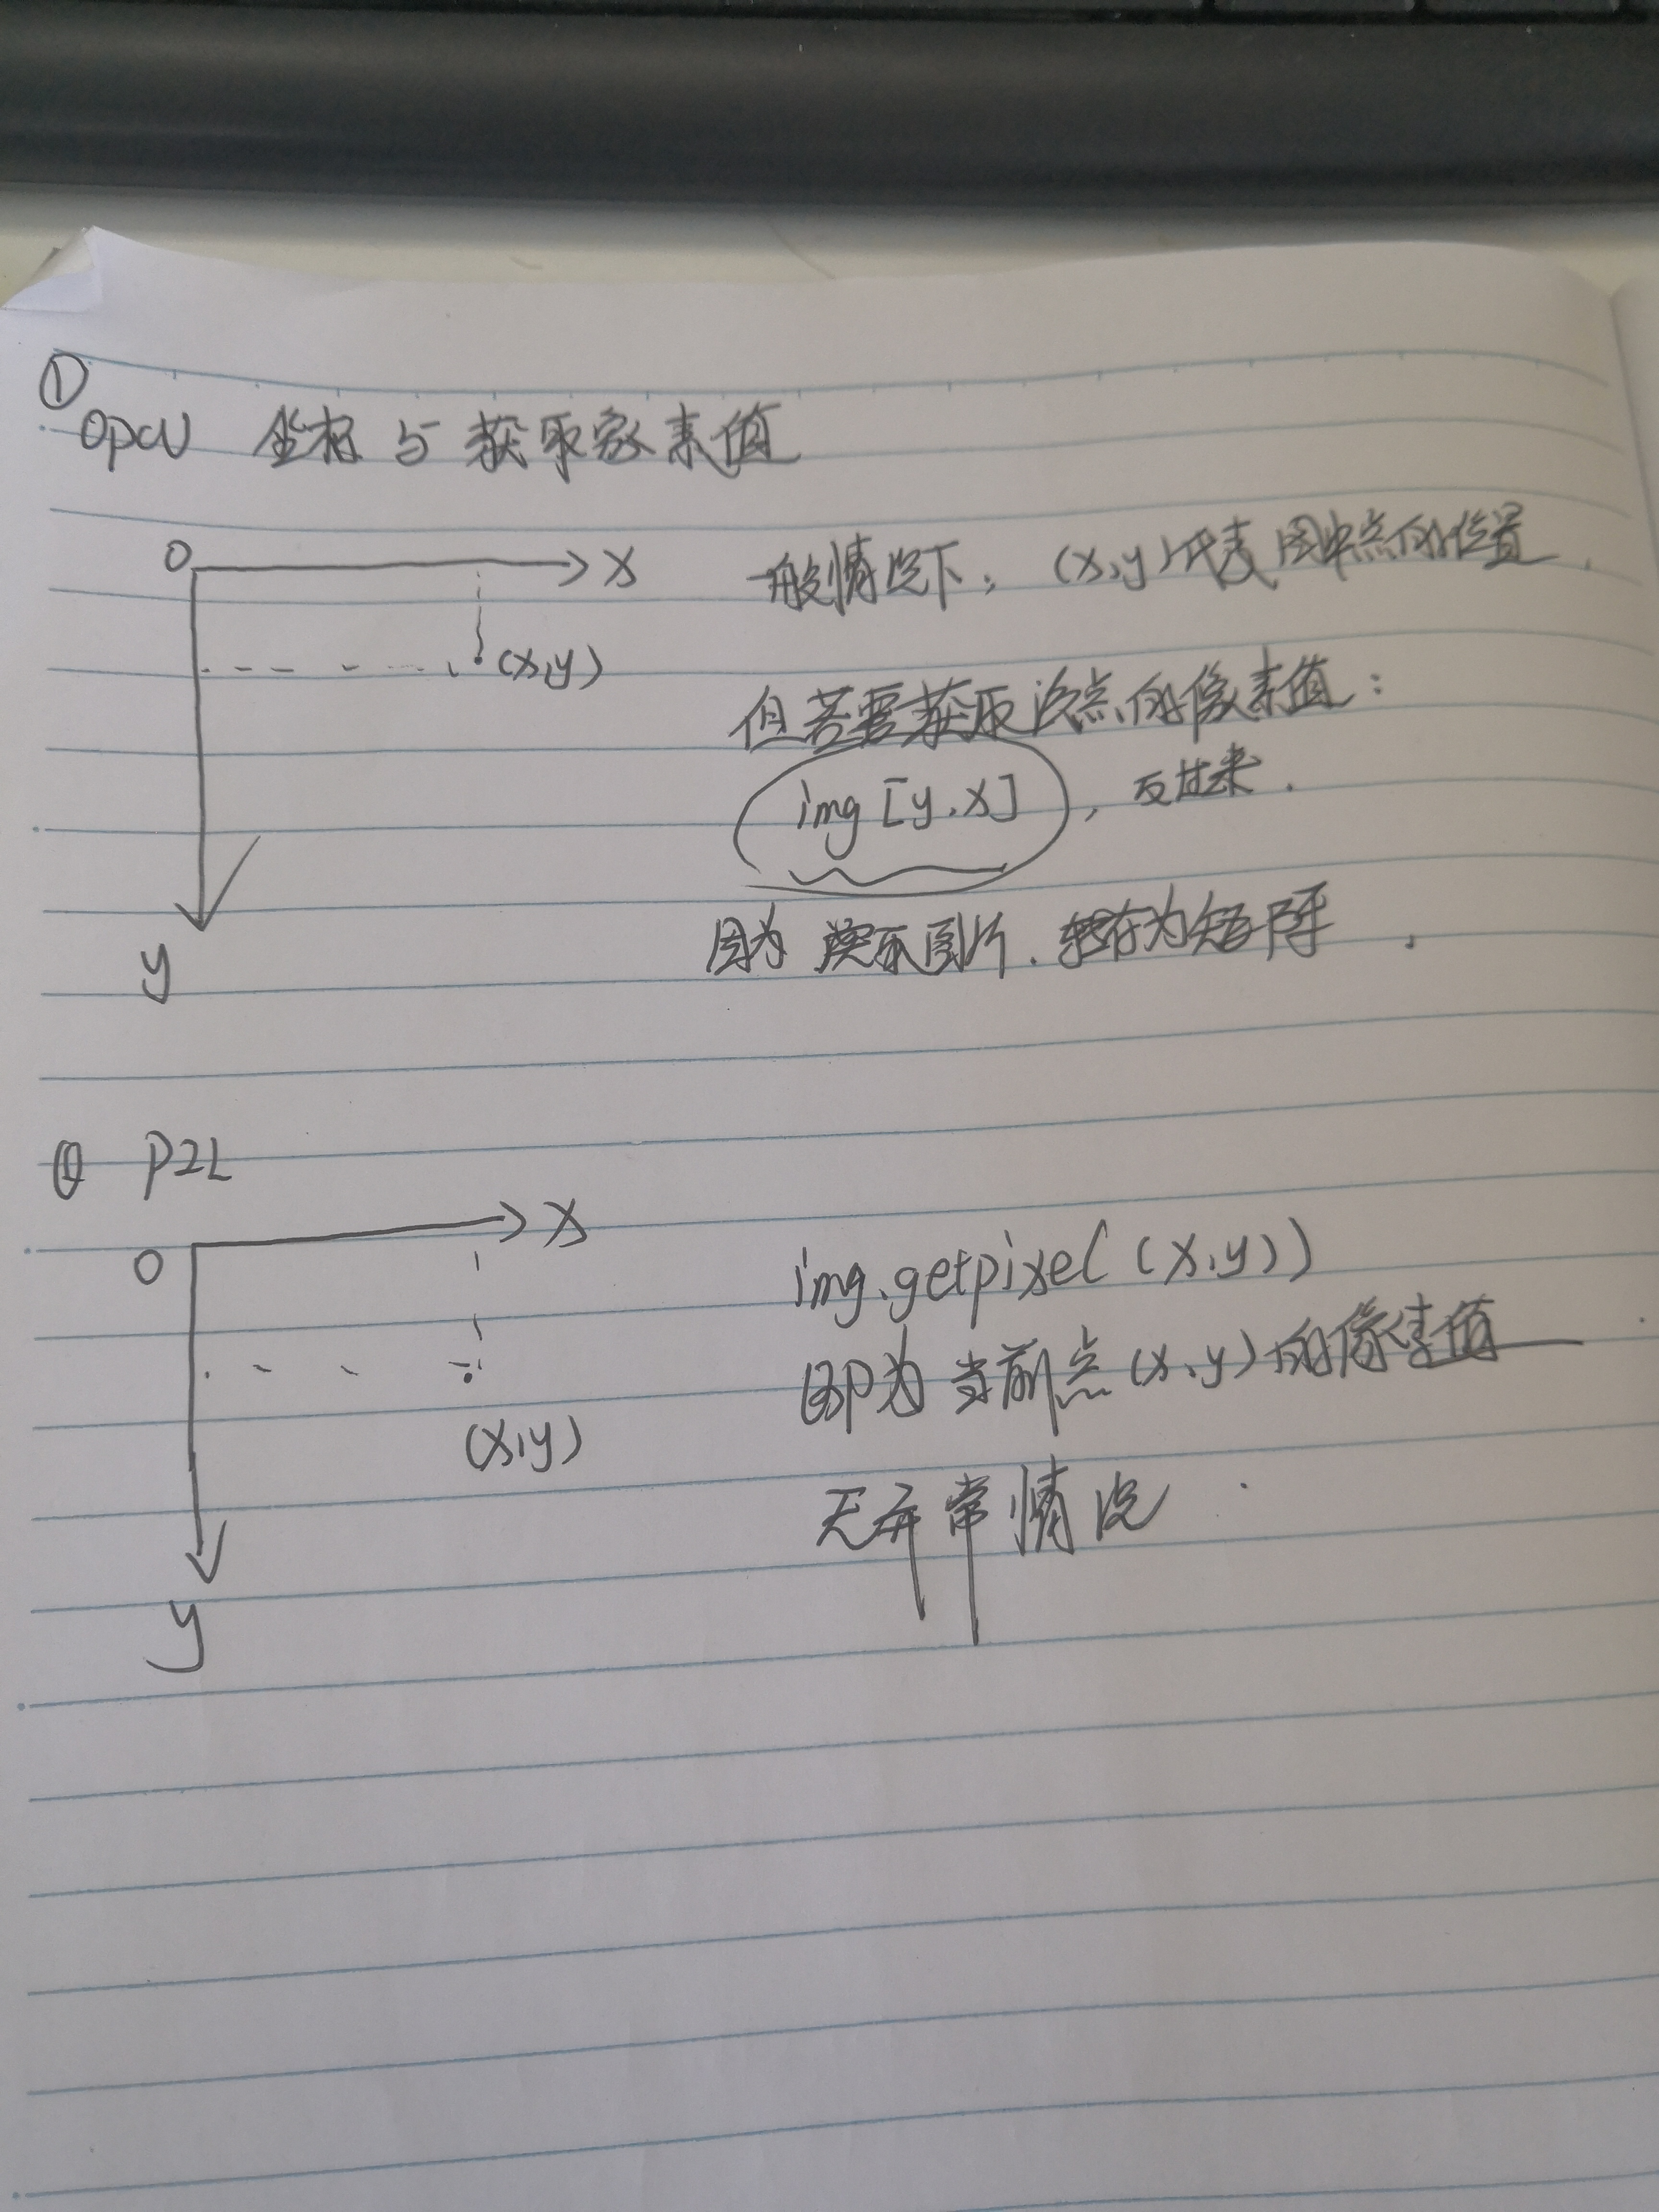 ①
opcv 坐标与获取像素值
O x
一般情况下,(x,y)代表图中点的位置
(x,y)
但若要获取该点的像素值:
img[y,x],反过来.
因为读取图片.转存为矩阵.
y
PIL
O x
img.getpixel((x,y))
即为当前点(x,y)的像素值
(x,y)
无异常情况.
y